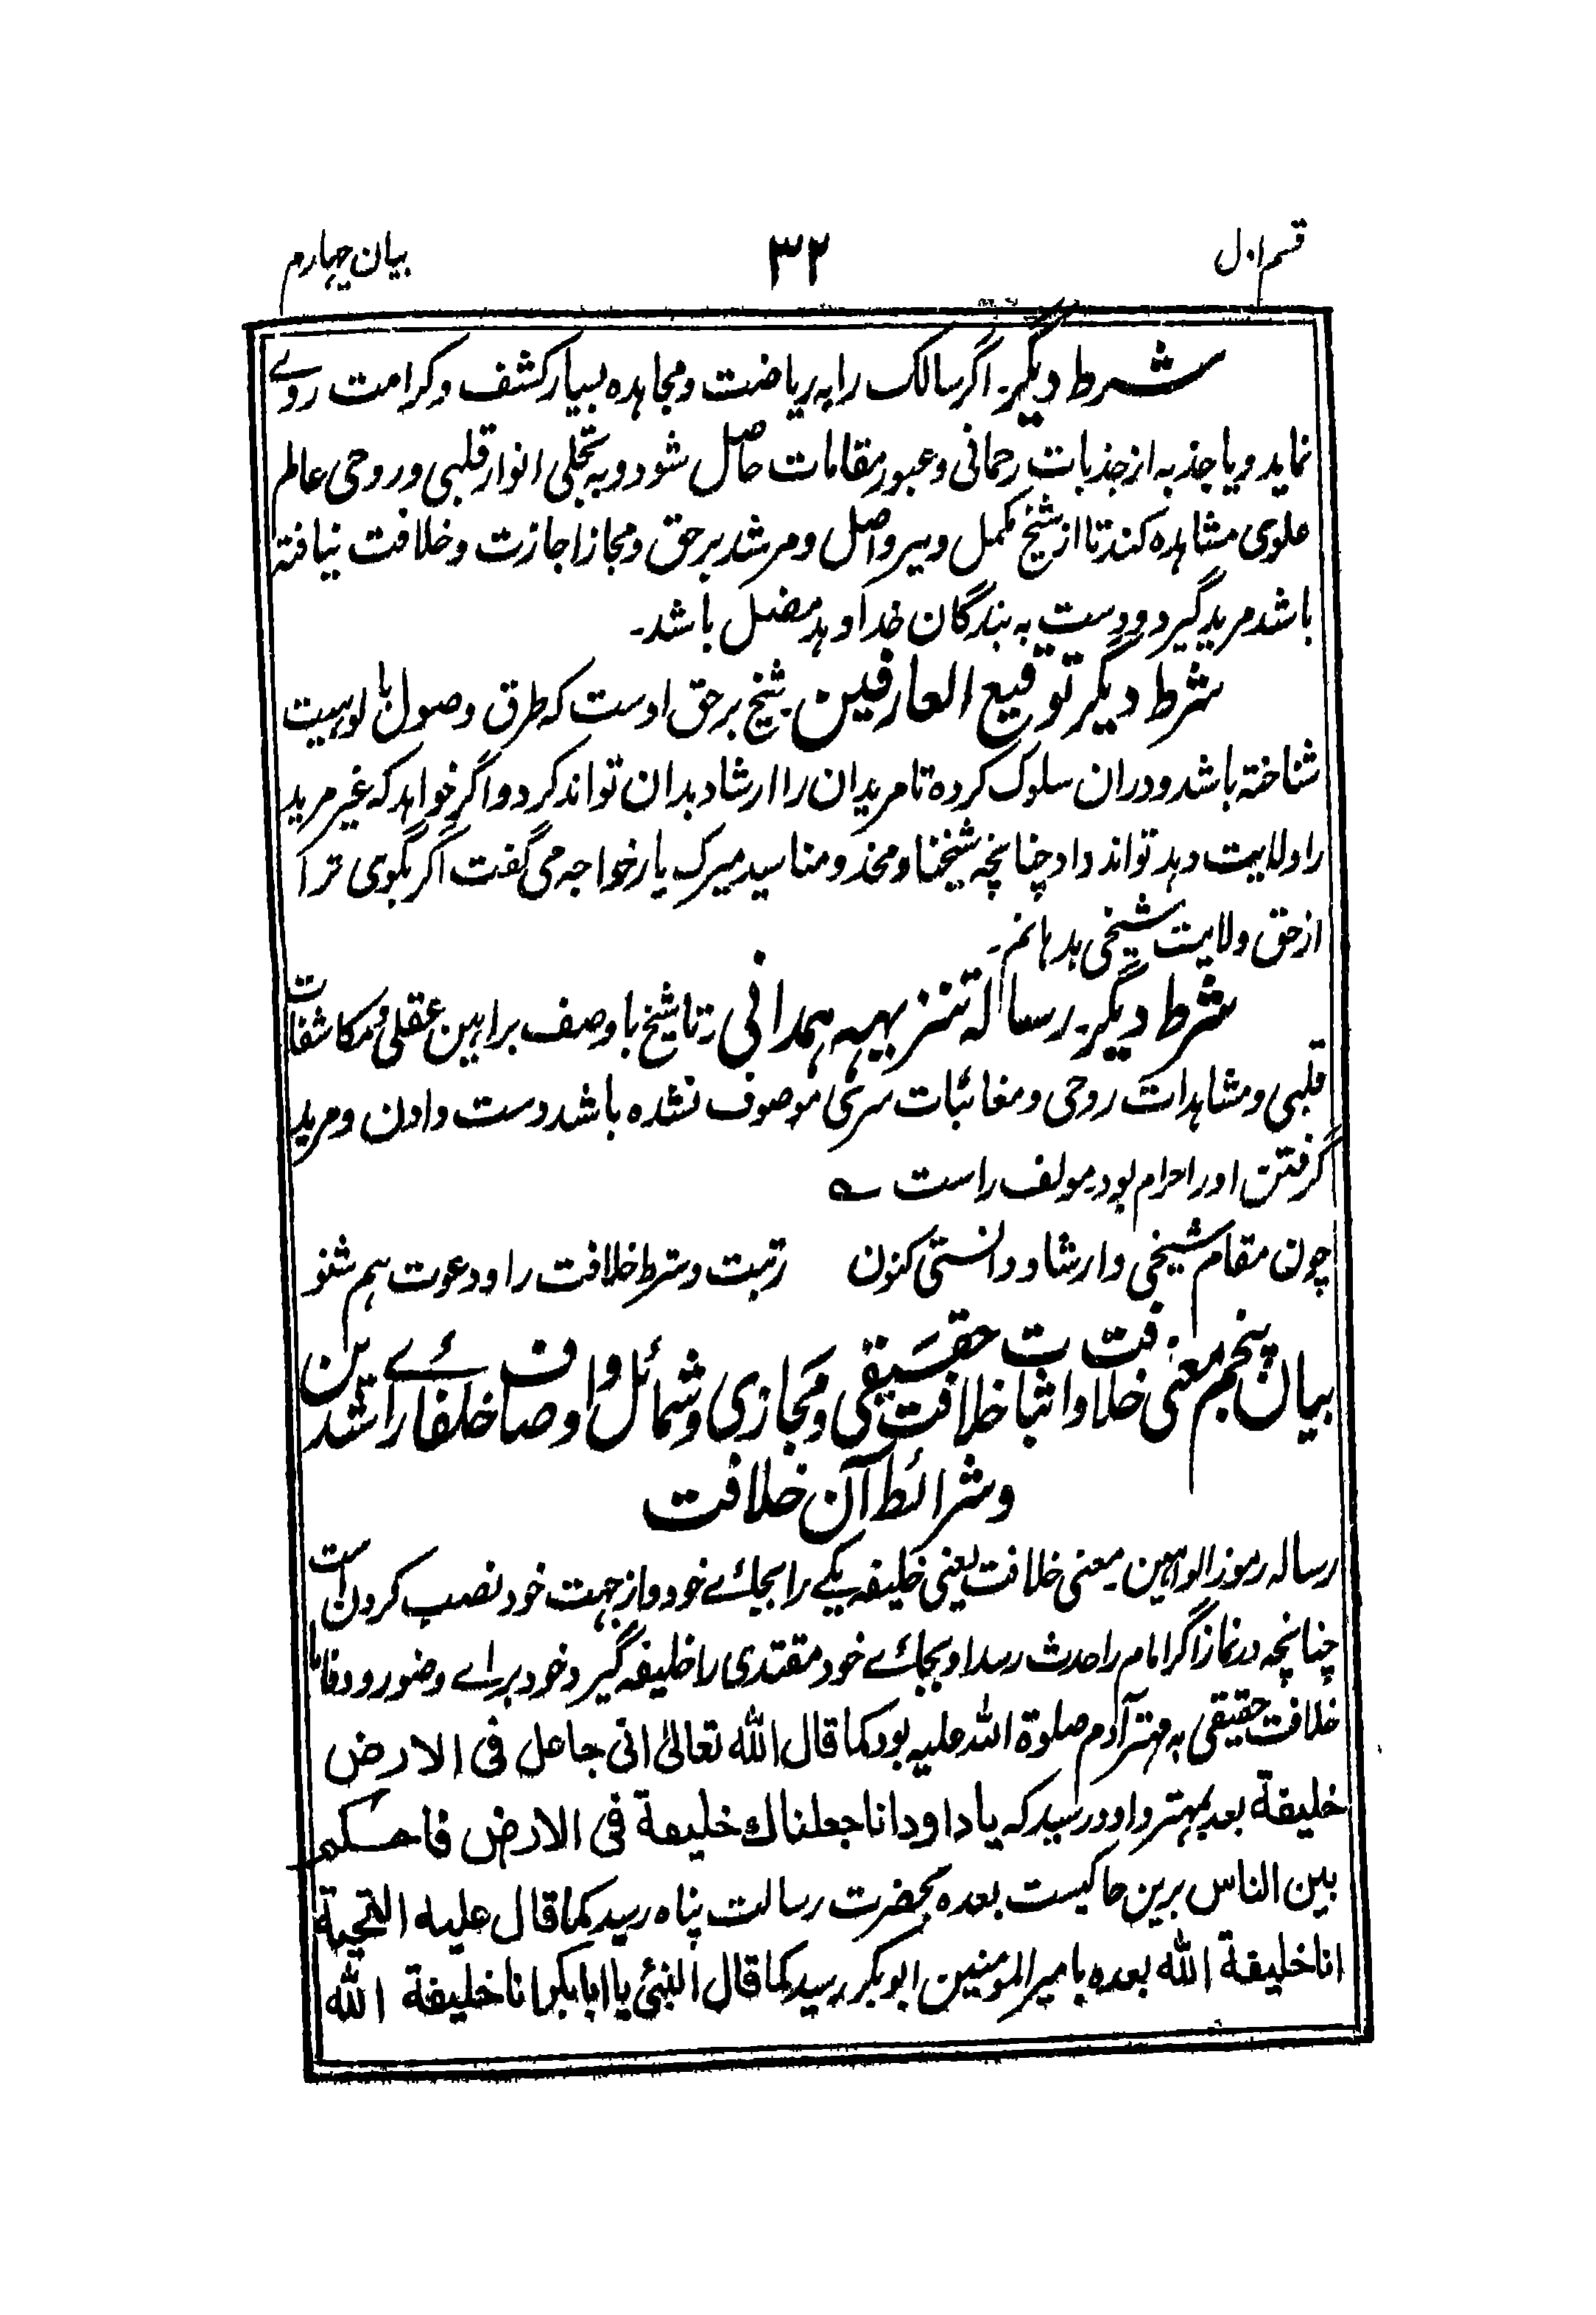 قسم اول
۳۲
بیان چہارم
شرط دیگر۔ اگر سالک را به ریاضت ومجاہدہ بسیار کشف وکرامت روے
نماید ویا جذبہ از جذبات رحمانی وعبور مقامات حاصل شود وبہ تجلی انوار قلبی وروحی عالم
علوی مشاہدہ کند تا از شیخ مکمل وپیر واصل ومرشد برحق ومجاز اجازت وخلافت نیافتہ
باشد مرید گیرد ودست بہ بندگان خدا دہد مضل باشد۔
شرط دیگر توقیع العارفین شیخ برحق اوست کہ طرق وصول بالوہیت
شناختہ باشد ودران سلوک کردہ تا مریدان را ارشاد بدان تواند کرد واگر خواہد کہ غیر مرید
را ولایت دہد تواند داد چنانچہ شیخنا ومخدومنا سید میرک یار خواجہ می گفت اگر بگوی ترا
از حق ولایت شیخی بدہانم۔
شرط دیگر۔ رسالہ تنزیہہ ہمدانی تا شیخ باوصف براہین عقلی ومکاشفات
قلبی ومشاہدات روحی ومغائبات سری موصوف نشدہ باشد دست دادن ومرید
گرفتن او را حرام بود مولف راست ؎
چون مقام شیخی وارشاد دانستی کنون رتبت وشرط خلافت را ودعوت ہم شنو
بیان پنجم معنی خلافت واثبات خلافت حقیقی ومجازی وشمائل واوصاف خلفائے راشدین
وشرائط آن خلافت
رسالہ رموز الوالہین۔ معنی خلافت یعنی خلیفہ یکے را بجائے خود واز جہت خود نصب کردن است
چنانچہ در نماز اگر امام را حدث رسد او بجائے خود مقتدی را خلیفہ گیرد خود براے وضو رود فاما
خلافت حقیقی بہ مہتر آدم صلوۃ اللہ علیہ بود کما قال اللہ تعالیٰ انی جاعل فی الارض
خلیفة بعد بمہتر داود رسید کہ یا داود انا جعلناك خلیفة فی الارض فاحکم
بین الناس برین حاکیست بعدہ بحضرت رسالت پناہ رسید کما قال علیہ التحیة
انا خلیفة اللہ بعدہ بامیر المومنین ابوبکر رسید کما قال النبی یا ابابکر انا خلیفة اللہ